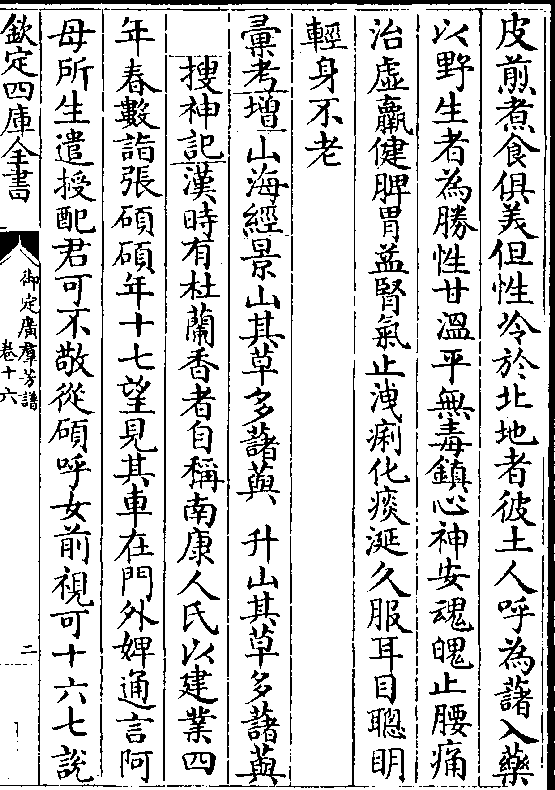 皮煎煮食俱美但性冷於北地者彼土人呼為藷入藥
以野生者為勝性甘溫平無毒鎮心神安魂魄止腰痛
治虛羸健脾胃益腎氣止洩痢化痰涎久服耳目聰明
輕身不老
彙考增山海經景山其草多藷藇 升山其草多藷藇
搜神記漢時有杜蘭香者自稱南康人氏以建業四
年春數詣張碩碩年十七望見其車在門外婢通言阿
母所生遣授配君可不敬從碩呼女前視可十六七説
欽定四庫全書
御定廣羣芳譜
卷十六
二